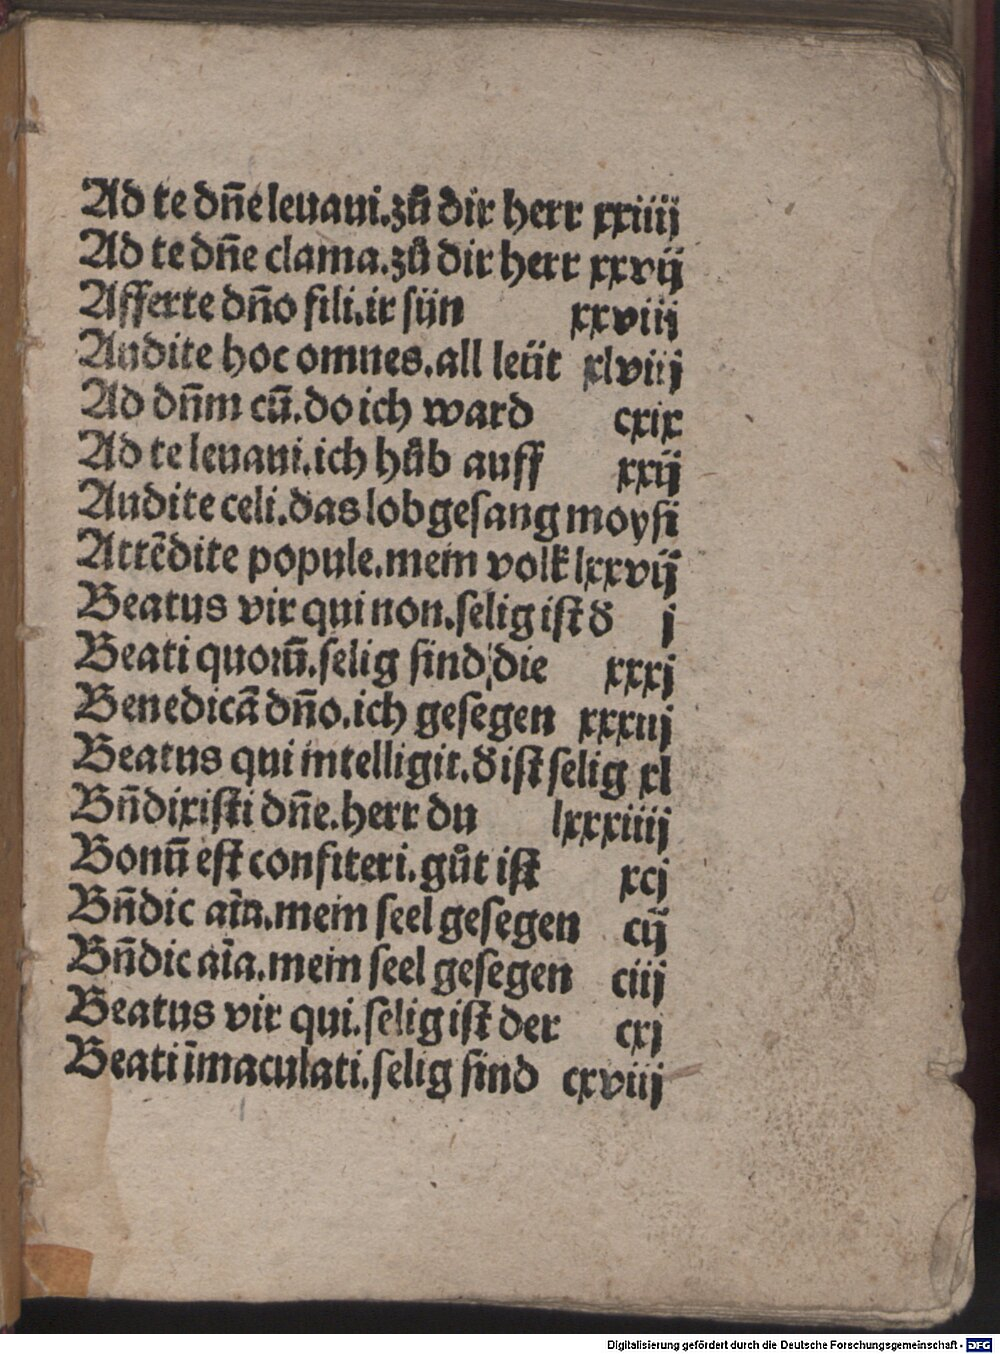 Ad te dn̄e leuaui.zů dir herr xxiiij
Ad te dn̄e clama.zů dir herr xxvij
Afferte dn̄o fili.ir sün xxviij
Audite hoc omnes.all leüt xlviij
Ad dn̄m cū.do ich ward cxix
Ad te leuaui.ich hůb auff xxij
Audite celi.das lobgesang moysi
Attēdite popule.mein volk lxxvij
Beatus vir qui non.selig ist d̕ j
Beati quoꝛū.selig sind die xxxj
Benedicā dn̄o.ich gesegen xxxiij
Beatus qui intelligit.d̕ ist selig xl
Bn̄dixisti dn̄e.herr du lxxxiiij
Bonū est confiteri.gůt ist xcj
Bn̄dic aīa.mein seel gesegen cij
Bn̄dic aīa.mein seel gesegen ciij
Beatus vir qui.selig ist der cxj
Beati īmaculati.selig sind cxviij
Digitalisierung gefördert durch die Deutsche Forschungsgemeinschaft - DFG